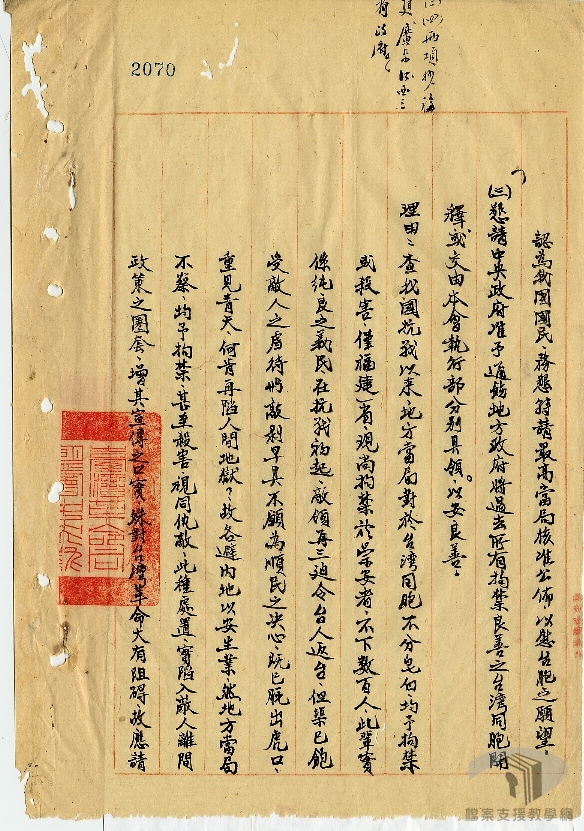 2070
認為我國國民、務懇轉請最高當局核准公佈、以慰台胞之願望。
(三)懇請中央政府准予通飭地方政府將過去所有拘禁良善之台灣同胞開
釋、或交由本會執行部分別具領。以安良善。
理由：查我國抗戰以來、地方當局對於台灣同胞不分皂白均予拘禁
或殺害、僅福建一省、現尚拘禁於崇安者、不下數百人、此輩實
係純良之義民、在抗戰初起、敵領再三迫令台人返台、但渠已飽
受敵人之虐待、剝早具不願為順民之決心、既已脫出虎口、
重見青天、何肯再陷人間地獄、故各避內地以安生業、然地方當局
不察、均予拘禁、甚至殺害、視同仇敵、此種處置、實陷入敵人離間
政策之圈套、增其宣傳之口實、殊對台灣革命大有阻碍、故應請
檔案支援教學網